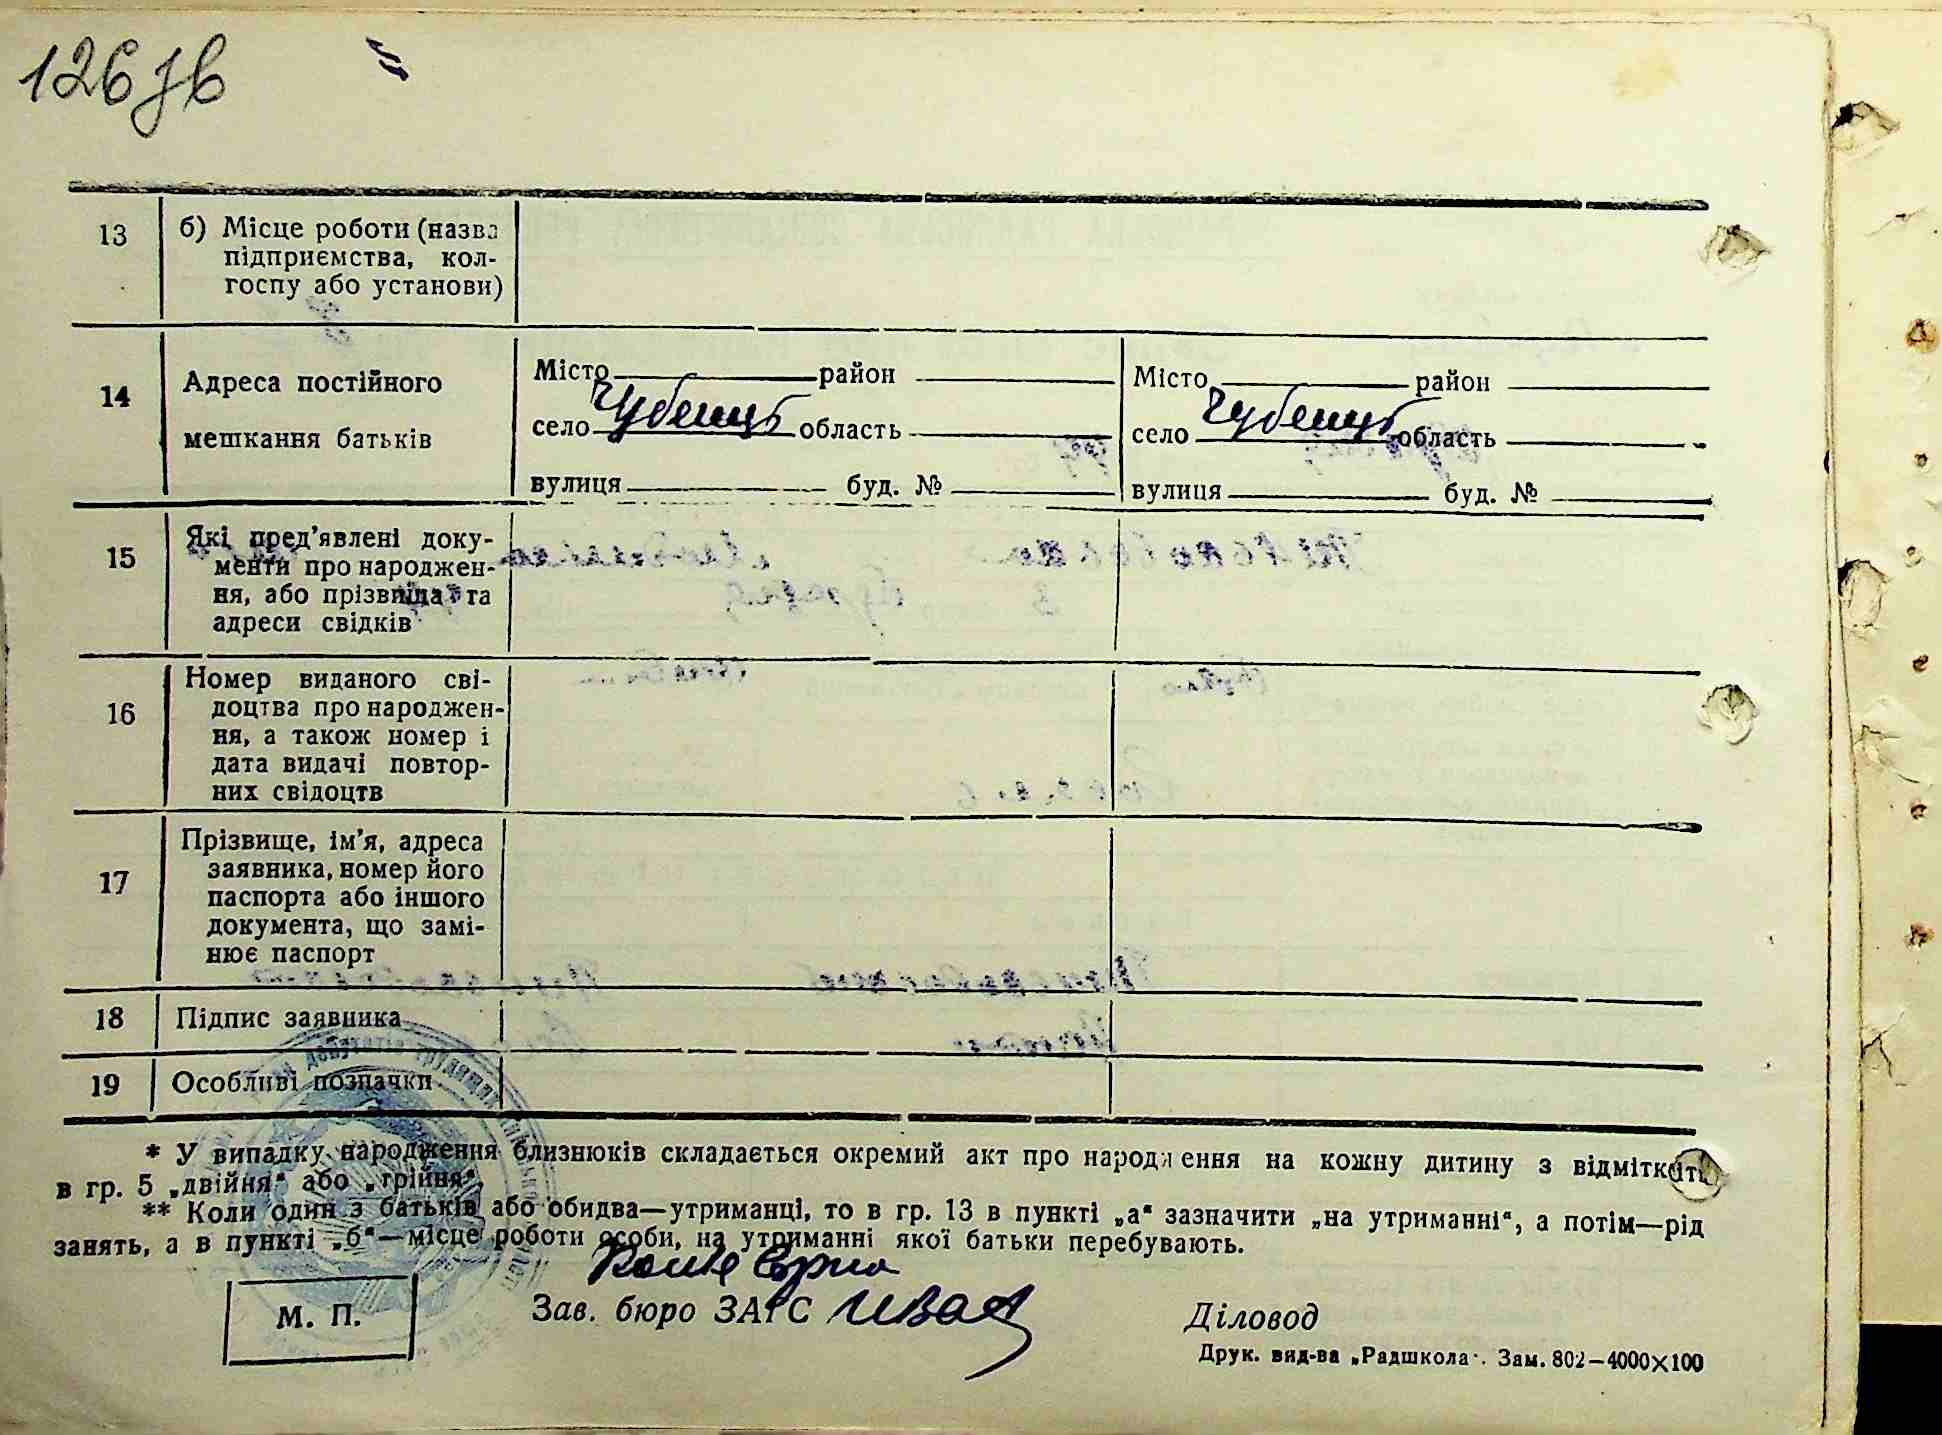 126 зв
13
б) Місце роботи (назва
підприємства, кол-
госпу або установи)
14
Адреса постійного
мешкання батьків
Місто район
село Чубенць область
вулиця буд. №
Місто район
село Чубенць область
вулиця буд. №
15
Які пред’явлені доку-
менти про народжен-
ня, або прізвища та
адреси свідків
16
Номер виданого сві-
доцтва про народжен-
ня, а також номер і
дата видачі повтор-
них свідоцтв
17
Прізвище, ім’я, адреса
заявника, номер його
паспорта або іншого
документа, що замі-
нює паспорт
18
Підпис заявника
19
Особливі позначки
* У випадку народження близнюків складається окремий акт про народження на кожну дитину з відміткою
в гр. 5 „двійня“ або „трійня“.
** Коли один з батьків або обидва—утриманці, то в гр. 13 в пункті „а“ зазначити „на утриманні“, а потім—рід
занять, а в пункті „б“—місце роботи особи, на утриманні якої батьки перебувають.
М. П.
Зав. бюро ЗАГС
Діловод
Друк. вид-ва „Радшкола“. Зам. 802—4000×100